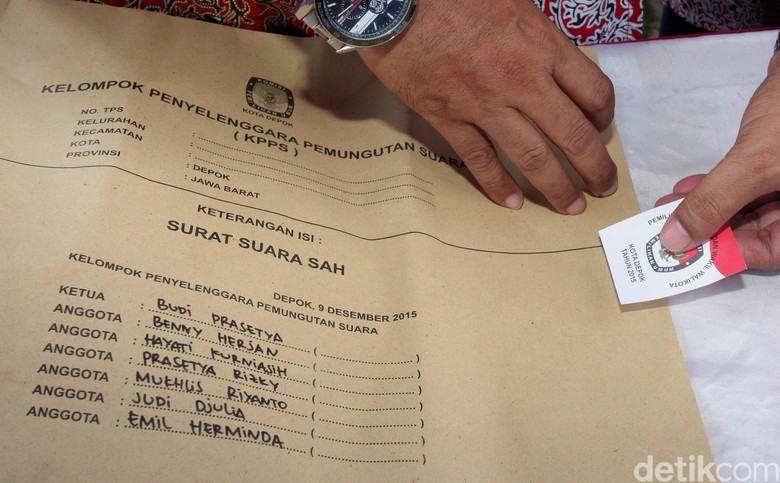 KOMISI
KOTA DEPOK
KELOMPOK PENYELENGGARA PEMUNGUTAN SUARA
( KPPS )
NO. TPS :
KELURAHAN :
KECAMATAN :
KOTA : DEPOK
PROVINSI : JAWA BARAT
KETERANGAN ISI :
SURAT SUARA SAH
DEPOK, 9 DESEMBER 2015
KELOMPOK PENYELENGGARA PEMUNGUTAN SUARA
KETUA : BUDI PRASETYA ( )
ANGGOTA : BENNY HERSAN ( )
ANGGOTA : HAYATI KURNIASIH ( )
ANGGOTA : PRASETYA RIZKY ( )
ANGGOTA : MUKHLIS RIYANTO ( )
ANGGOTA : JUDI DJULIA ( )
ANGGOTA : EMIL HERMINDA ( )
WAKIL WALIKOTA
KOTA DEPOK
TAHUN 2015
detikcom